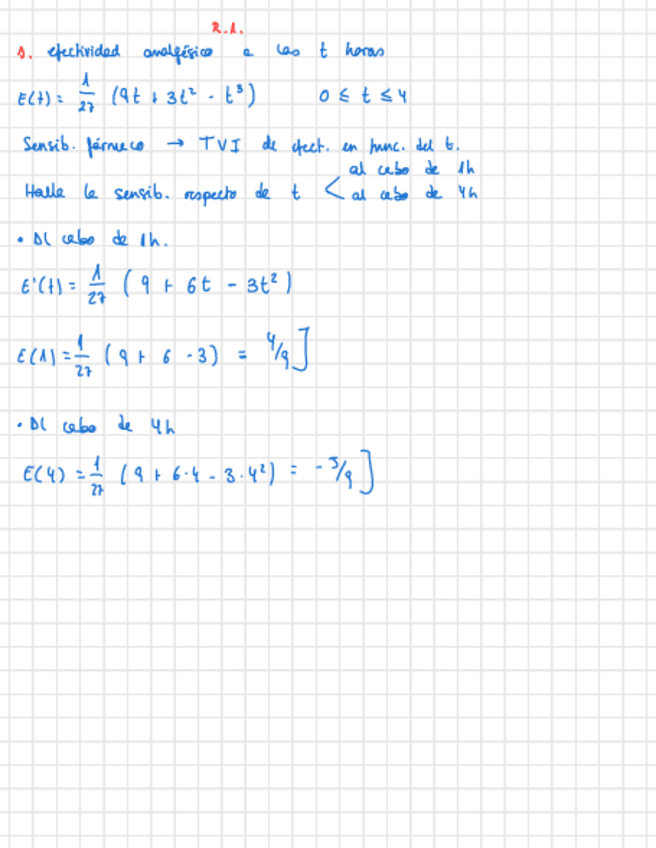 2.1.
1. efectividad analgésico a las t horas
E(t) = 1/27 (9t + 3t² - t³) 0 ≤ t ≤ 4
Sensib. fármaco → TVI de efect. en func. del t.
Halla la sensib. respecto de t < al cabo de 1h
al cabo de 4h
• Al cabo de 1h.
E'(t) = 1/27 (9 + 6t - 3t²)
E(1) = 1/27 (9 + 6 - 3) = 4/9]
• Al cabo de 4h
E(4) = 1/27 (9 + 6·4 - 3·4²) = -5/9]